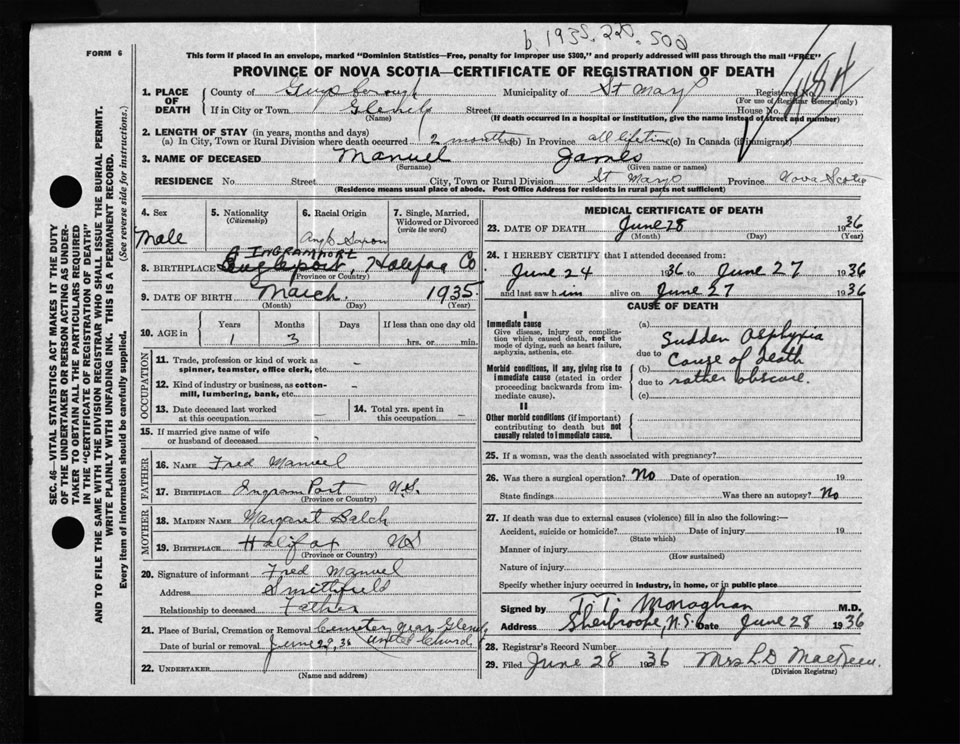 b. 1935. 220. 502
FORM 6
This form if placed in an envelope, marked "Dominion Statistics—Free, penalty for improper use $300," and properly addressed will pass through the mail "FREE"
PROVINCE OF NOVA SCOTIA—CERTIFICATE OF REGISTRATION OF DEATH
1. PLACE OF DEATH County of Guysborough Municipality of St Marys Registered No.
(For use of Registrar General only)
If in City or Town Glenelg Street House No.
(Name) (If death occurred in a hospital or institution, give the name instead of street and number)
2. LENGTH OF STAY (in years, months and days)
(a) In City, Town or Rural Division where death occurred 2 months (b) In Province all lifetime (c) In Canada (if immigrant)
3. NAME OF DECEASED Manuel James
(Surname) (Given name or names)
RESIDENCE No. Street City, Town or Rural Division St Marys Province Nova Scotia
(Residence means usual place of abode. Post Office Address for residents in rural parts not sufficient)
SEC. 46—VITAL STATISTICS ACT MAKES IT THE DUTY
OF THE UNDERTAKER OR PERSON ACTING AS UNDER-
TAKER TO OBTAIN ALL THE PARTICULARS REQUIRED
IN THE "CERTIFICATE OF REGISTRATION OF DEATH"
AND TO FILE THE SAME WITH THE DIVISION REGISTRAR WHO SHALL ISSUE THE BURIAL PERMIT.
WRITE PLAINLY WITH UNFADING INK. THIS IS A PERMANENT RECORD.
Every item of information should be carefully supplied. (See reverse side for instructions.)
4. Sex
Male
5. Nationality
(Citizenship)
6. Racial Origin
Anglo Saxon
7. Single, Married,
Widowed or Divorced
(write the word)
INGRAMPORT
8. BIRTHPLACE Halifax Co
(Province or Country)
9. DATE OF BIRTH March 1935
(Month) (Day) (Year)
10. AGE in Years Months Days If less than one day old
1 3 hrs. or min.
OCCUPATION
11. Trade, profession or kind of work as
spinner, teamster, office clerk, etc. –
12. Kind of industry or business, as cotton-
mill, lumbering, bank, etc. –
13. Date deceased last worked
at this occupation –
14. Total yrs. spent in
this occupation –
15. If married give name of wife
or husband of deceased –
FATHER
16. NAME Fred Manuel
17. BIRTHPLACE Ingram Port N.S.
(Province or Country)
MOTHER
18. MAIDEN NAME Margaret Balch
19. BIRTHPLACE Halifax NS
(Province or Country)
20. Signature of informant Fred Manuel
Address Smithfield
Relationship to deceased Father
21. Place of Burial, Cremation or Removal Cemetery near Glenelg
Date of burial or removal June 29, 36 United Church
22. UNDERTAKER
(Name and address)
MEDICAL CERTIFICATE OF DEATH
23. DATE OF DEATH June 28 1936
(Month) (Day) (Year)
24. I HEREBY CERTIFY that I attended deceased from:
June 24 1936 to June 27 1936
and last saw him alive on June 27 1936
CAUSE OF DEATH
I
Immediate cause
Give disease, injury or complica-
tion which caused death, not the
mode of dying, such as heart failure,
asphyxia, asthenia, etc.
Morbid conditions, if any, giving rise to
immediate cause (stated in order
proceeding backwards from im-
mediate cause).
II
Other morbid conditions (if important)
contributing to death but not
causally related to immediate cause.
(a) Sudden Asphyxia
due to
(b) Cause of death
due to rather obscure.
(c)
25. If a woman, was the death associated with pregnancy?
26. Was there a surgical operation? No Date of operation 19
State findings Was there an autopsy? No
27. If death was due to external causes (violence) fill in also the following:—
Accident, suicide or homicide? Date of injury 19
(State which)
Manner of injury
(How sustained)
Nature of injury
Specify whether injury occurred in industry, in home, or in public place
Signed by T. T. Monaghan M.D.
Address Sherbrooke, N.S. Date June 28 1936
28. Registrar's Record Number
29. Filed June 28 1936 Mrs L D
(Division Registrar)